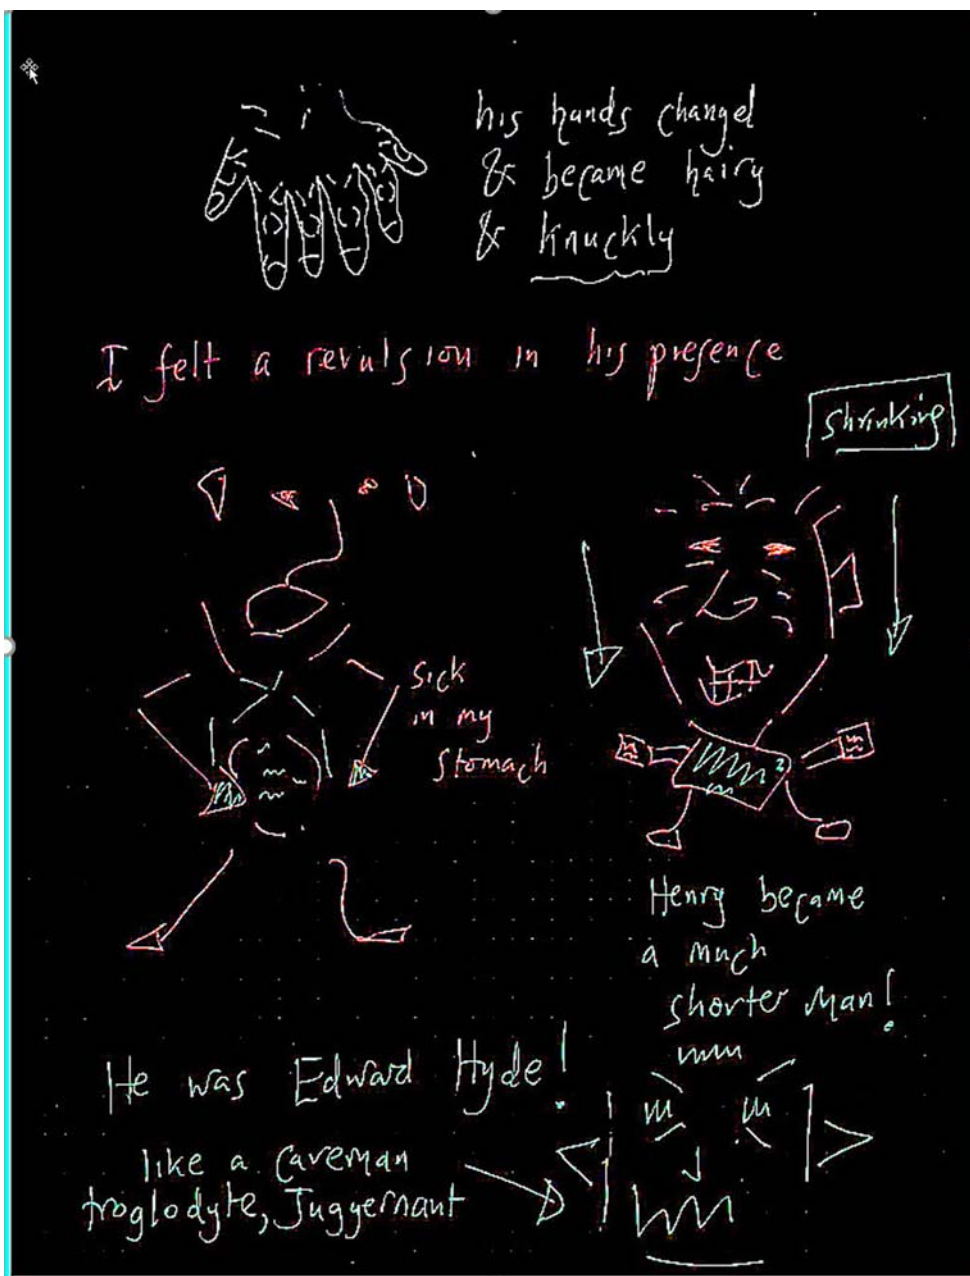 his hands changed
& became hairy
& knuckly
I felt a revulsion in his presence
Shrinking
Sick
in my
stomach
Henry became
a much
shorter Man!
He was Edward Hyde!
like a caveman
troglodyte, Juggernant